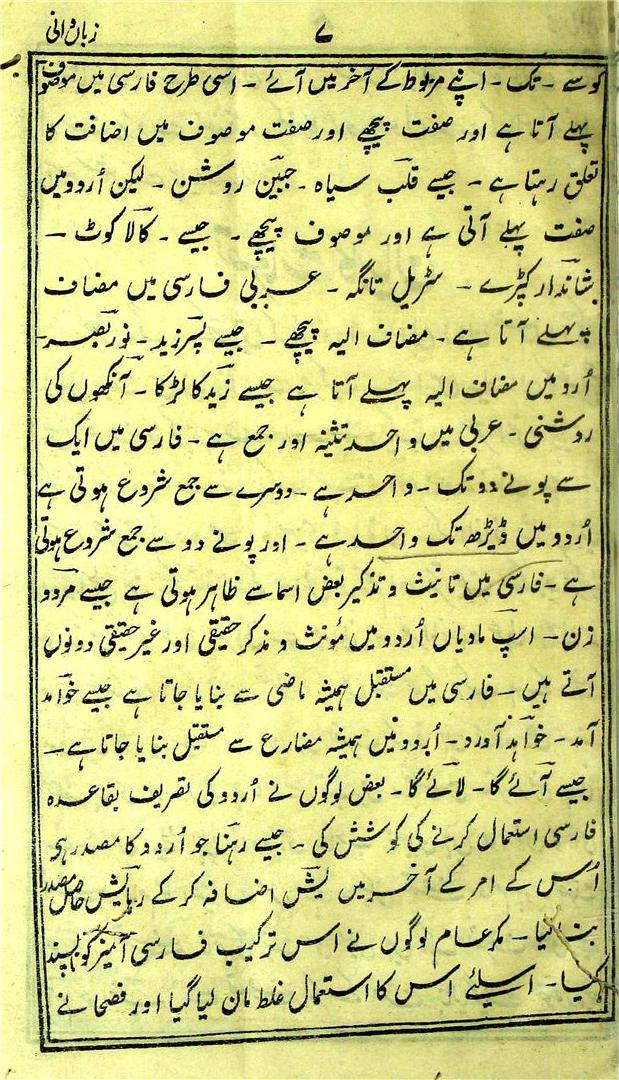 ۷ زبان دانی
کو سے - تک - اپنے مربوط کے آخر میں آئے - اسی طرح فارسی میں موصوف
پہلے آتا ہے اور صفت پیچھے اور صفت موصوف میں اضافت کا
تعلق رہتا ہے - جیسے قلب سیاہ - جبین روشن - لیکن اُردو میں
صفت پہلے آتی ہے اور موصوف پیچھے - جیسے - کالا کوٹ -
شاندار کپڑے - سٹریل تانگہ - عربی فارسی میں مضاف
پہلے آتا ہے - مضاف الیہ پیچھے - جیسے پسر زید - نور بصر -
اُردو میں مضاف الیہ پہلے آتا ہے جیسے زید کا لڑکا - آنکھوں کی
روشنی - عربی میں واحد تثنیہ اور جمع ہے - فارسی میں ایک
سے پونے دو تک - واحد ہے - دوسرے سے جمع شروع ہوتی ہے
اُردو میں ڈیڑھ تک واحد ہے - اور پونے دو سے جمع شروع ہوتی
ہے - فارسی میں تانیث و تذکیر بعض اسما سے ظاہر ہوتی ہے جیسے مرد و
زن - اسپ مادیاں اُردو میں مؤنث و مذکر حقیقی اور غیر حقیقی دونوں
آتے ہیں - فارسی میں مستقبل ہمیشہ ماضی سے بنایا جاتا ہے جیسے خواہد
آمد - خواہد آورد - اُردو میں ہمیشہ مضارع سے مستقبل بنایا جاتا ہے -
جیسے آئے گا - لائے گا - بعض لوگوں نے اُردو کی تصریف بقاعدہ
فارسی استعمال کرنے کی کوشش کی - جیسے رہنا جو اُردو کا مصدر ہی
اُس کے امر کے آخر میں یش اضافہ کر کے رہایش حاصل مصدر
بنا لیا - مگر عام لوگوں نے اس ترکیب فارسی آمیز کو پسند
کیا - اسلئے اس کا استعمال غلط مان لیا گیا اور فصحا نے